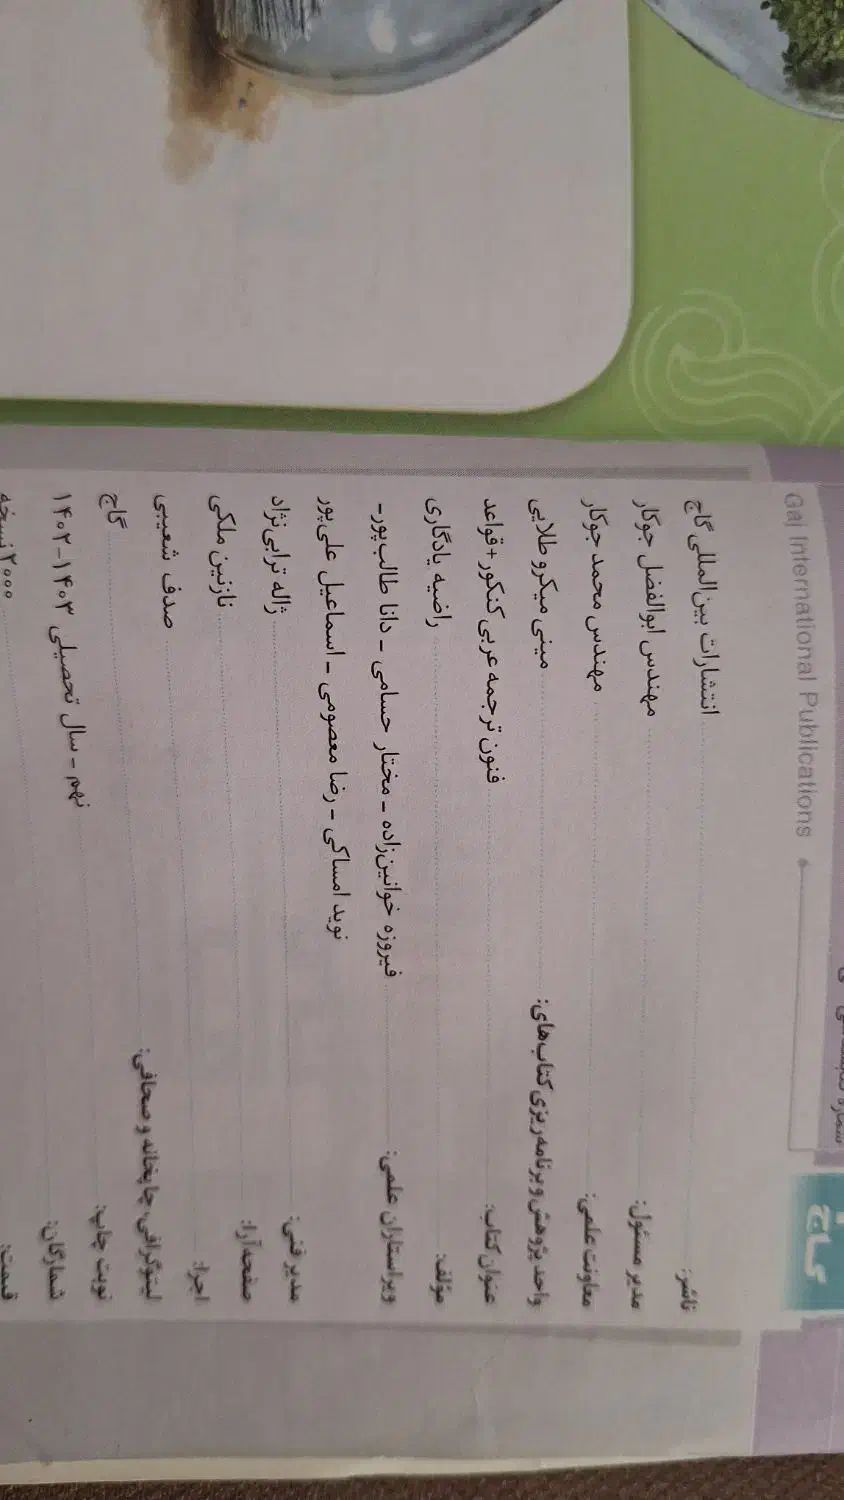 Gaj International Publications
گاج
ناشر: انتشارات بین‌المللی گاج
مدیر مسئول: مهندس ابوالفضل جوکار
معاونت علمی: مهندس محمد جوکار
واحد پژوهش و برنامه‌ریزی کتاب‌های: مینی میکرو طلایی
عنوان کتاب: فنون ترجمه عربی کنکور + قواعد
مؤلف: راضیه یادگاری
ویراستاران علمی: فیروزه خوانین‌زاده - مختار حسامی - دانا طالب‌پور -
نوید امساکی - رضا معصومی - اسماعیل علی‌پور
مدیر فنی: ژاله ترابی‌نژاد
صفحه‌آرا: نازنین ملکی
اجرا: صدف شعیبی
لیتوگرافی، چاپخانه و صحافی: گاج
نوبت چاپ: نهم - سال تحصیلی ۱۴۰۳-۱۴۰۲
شمارگان: ۲۰۰۰ نسخه
قیمت: